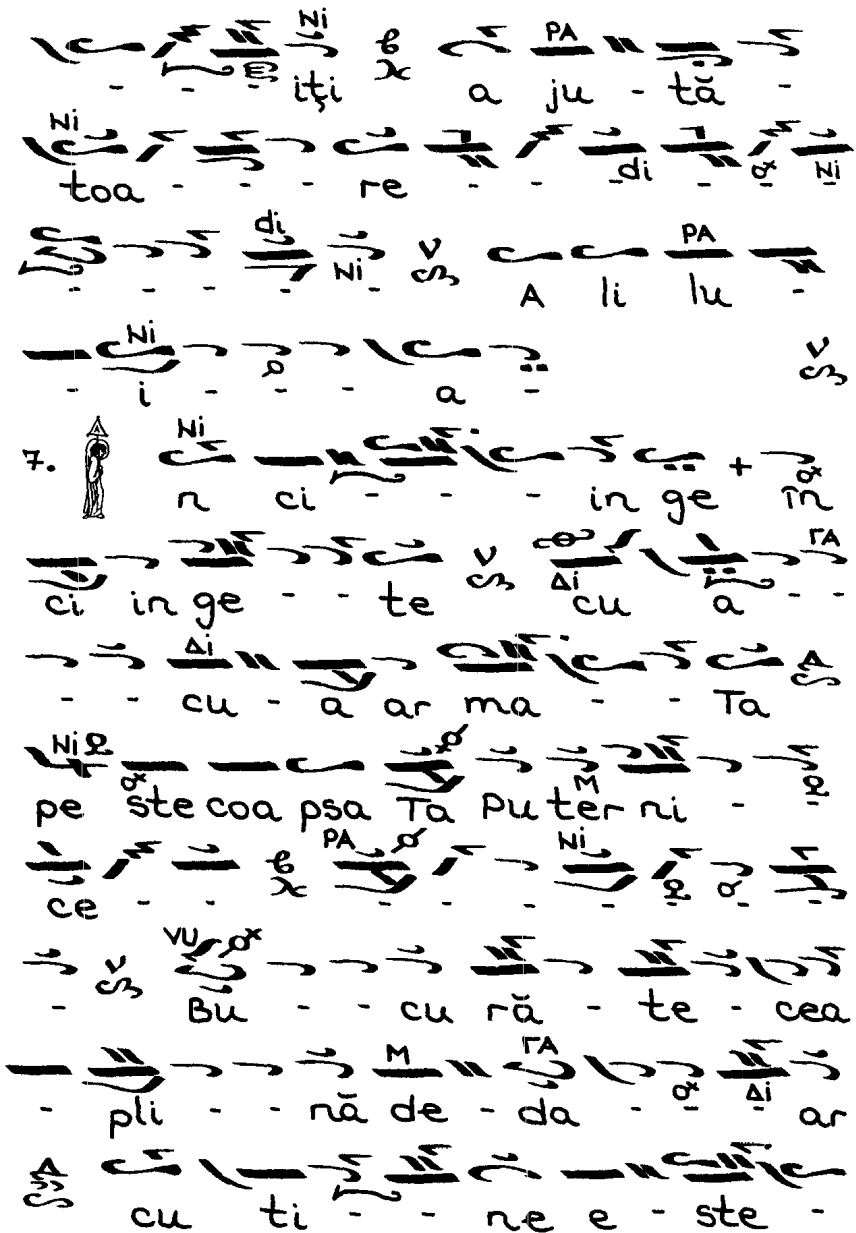 Ni PA
- - - iţi a ju - tă -
Ni
toa - - - re - - - di - - Ni
di PA
- - - - Ni - A li lu -
Ni
- i - - - a -
Ni
7. n ci - - - in ge + în
ΓΑ
ci in ge - - te Δi cu a - -
Δi
- - cu - a ar ma - - Ta
Ni M
pe ste coa psa Ta Pu ter ni -
PA Ni
ce - - - - - - - -
VU
- Bu - - cu ră - te - cea
M ΓΑ
- pli - - nă de - da - - Δi ar
cu ti - - ne e - ste -